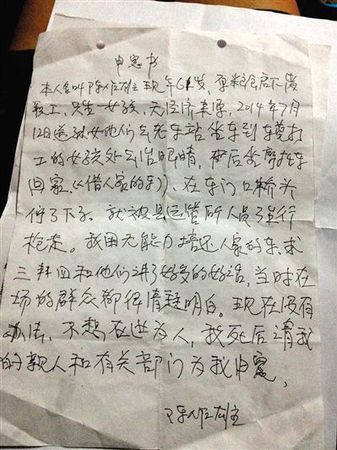 申冤书
本人叫陈作雄 现年61岁,系粮食局下岗
职工,只生一女孩,无经济来源,2014年7月
12日送我女他们去车站坐车到东莞打
工的女孩处去治眼睛,而后我骑摩托车
回家(借人家的车),在东门口桥头
停了下子,就被县运管所人员强行
抢走。我因无能力赔还人家的车,求
三拜四和他们讲了好多的好话,当时在
场的群众都很清楚明白。现在没有
办法,不想在世为人,我死后请我
的亲人和有关部门为我申冤,
陈作雄